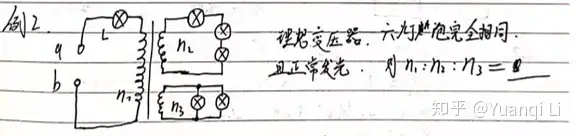 例2.
L
a
b
n₁
n₂
n₃
理想变压器. 六灯泡完全相同.
且正常发光. 则 n₁:n₂:n₃=
知乎 @Yuanqi Li